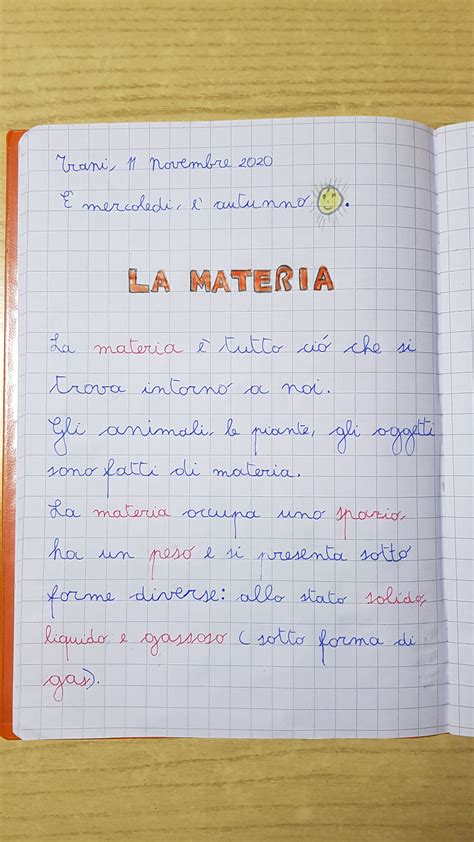 Trani, 11 Novembre 2020
È mercoledì, è autunno.
LA MATERIA
La materia è tutto ció che si
trova intorno a noi.
Gli animali, le piante, gli oggetti
sono fatti di materia.
La materia occupa uno spazio,
ha un peso e si presenta sotto
forme diverse: allo stato solido,
liquido e gassoso (sotto forma di
gas).